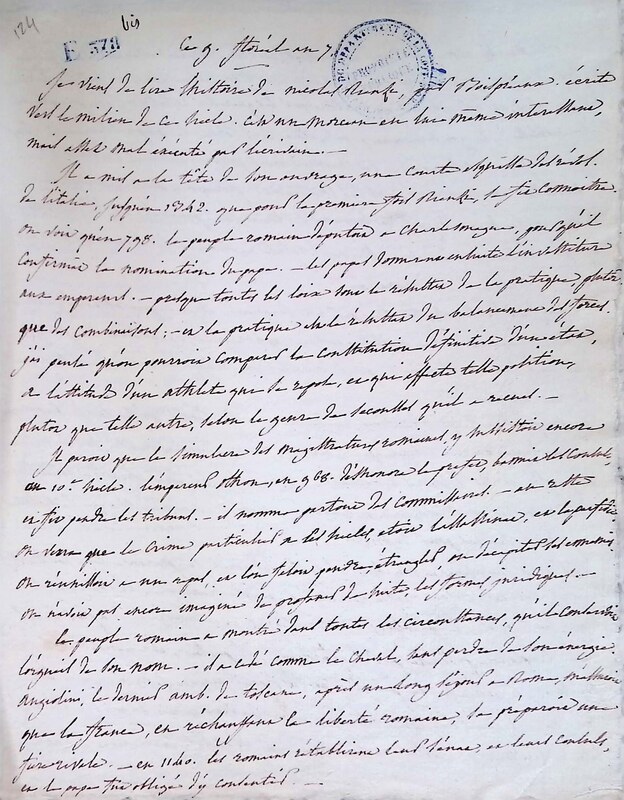 124
bis
E 378
ce 9. floréal an 7.
Je viens de lire l'histoire de nicolas Rienzi, par Boispréaux. écrite
vers le milieu de ce siecle. c'est un morceau en lui même interessant,
mais assez mal exécuté par l'écrivain. —
Il a mis a la tête de son ouvrage, une courte esquisse des révol.
de l'italie, jusqu'en 1342. que pour la premiere fois Rienzi, se fit connoitre.
on voit qu'en 798. le peuple romain députa a Charlemagne, pour qu'il
confirmat la nomination du pape. — les papes donnerent ensuite l'investiture
aux empereurs. — presque toutes les loix sont le résultat de la pratique, plutôt
que des combinaisons; — et la pratique est le résultat du balancement des forces.
j'ai pensé qu'on pourroit comparer la constitution définitive d'un état,
a l'attitude d'un athlete que se repose, et qui affecte telle position,
plutot que telle autre, selon le genre de secousses qu'il a recues. —
Il paroit que le simulacre des magistratures romaines, y subsistoit encore
au 10e siecle. l'empereur othon, en 968. déshonora le prefet, bannit les consuls,
et fit pendre les tribuns. — il nomme partout des commissaires. — au reste
on verra que le crime particulier a ces siecles, etoit l'assassinat, et la perfidie.
on réunissoit a un repas, et l'on faisoit pendre, étrangler, ou décapiter ses ennemis.
on n'avoit pas encore imaginé de profaner de suite les formes juridiques. —
le peuple romain a montré dans toutes les circonstances, qu'il conservoit
l'orgueil de son nom. — il a cédé comme le cheval, sans perdre de son énergie.
angiolini, le dernier amb. de toscane, après un long séjour a Rome, m'assuroit
que la france, en rechauffant la liberté romaine, se préparoit une
fiere rivale. — en 1140. les romains rétablirent leur sénat, et leurs consuls,
et le pape fut obligé d'y consentir. —